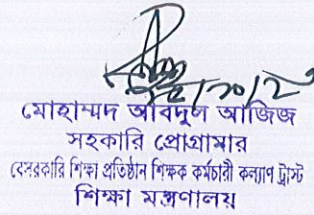 মোহাম্মদ আবদুল আজিজ
সহকারি প্রোগ্রামার
বেসরকারি শিক্ষা প্রতিষ্ঠান শিক্ষক কর্মচারী কল্যাণ ট্রাস্ট
শিক্ষা মন্ত্রণালয়